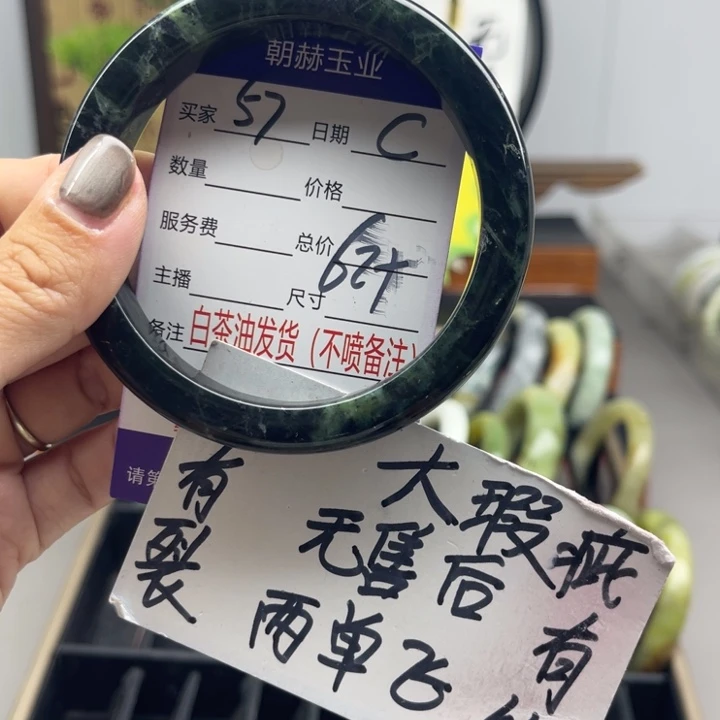 朝赫玉业
买家 57 日期 C
数量 价格
服务费 总价
主播 尺寸 62+
备注 白茶油发货（不喷备注）
请第
有裂
大瑕疵
无售后
有
两单飞